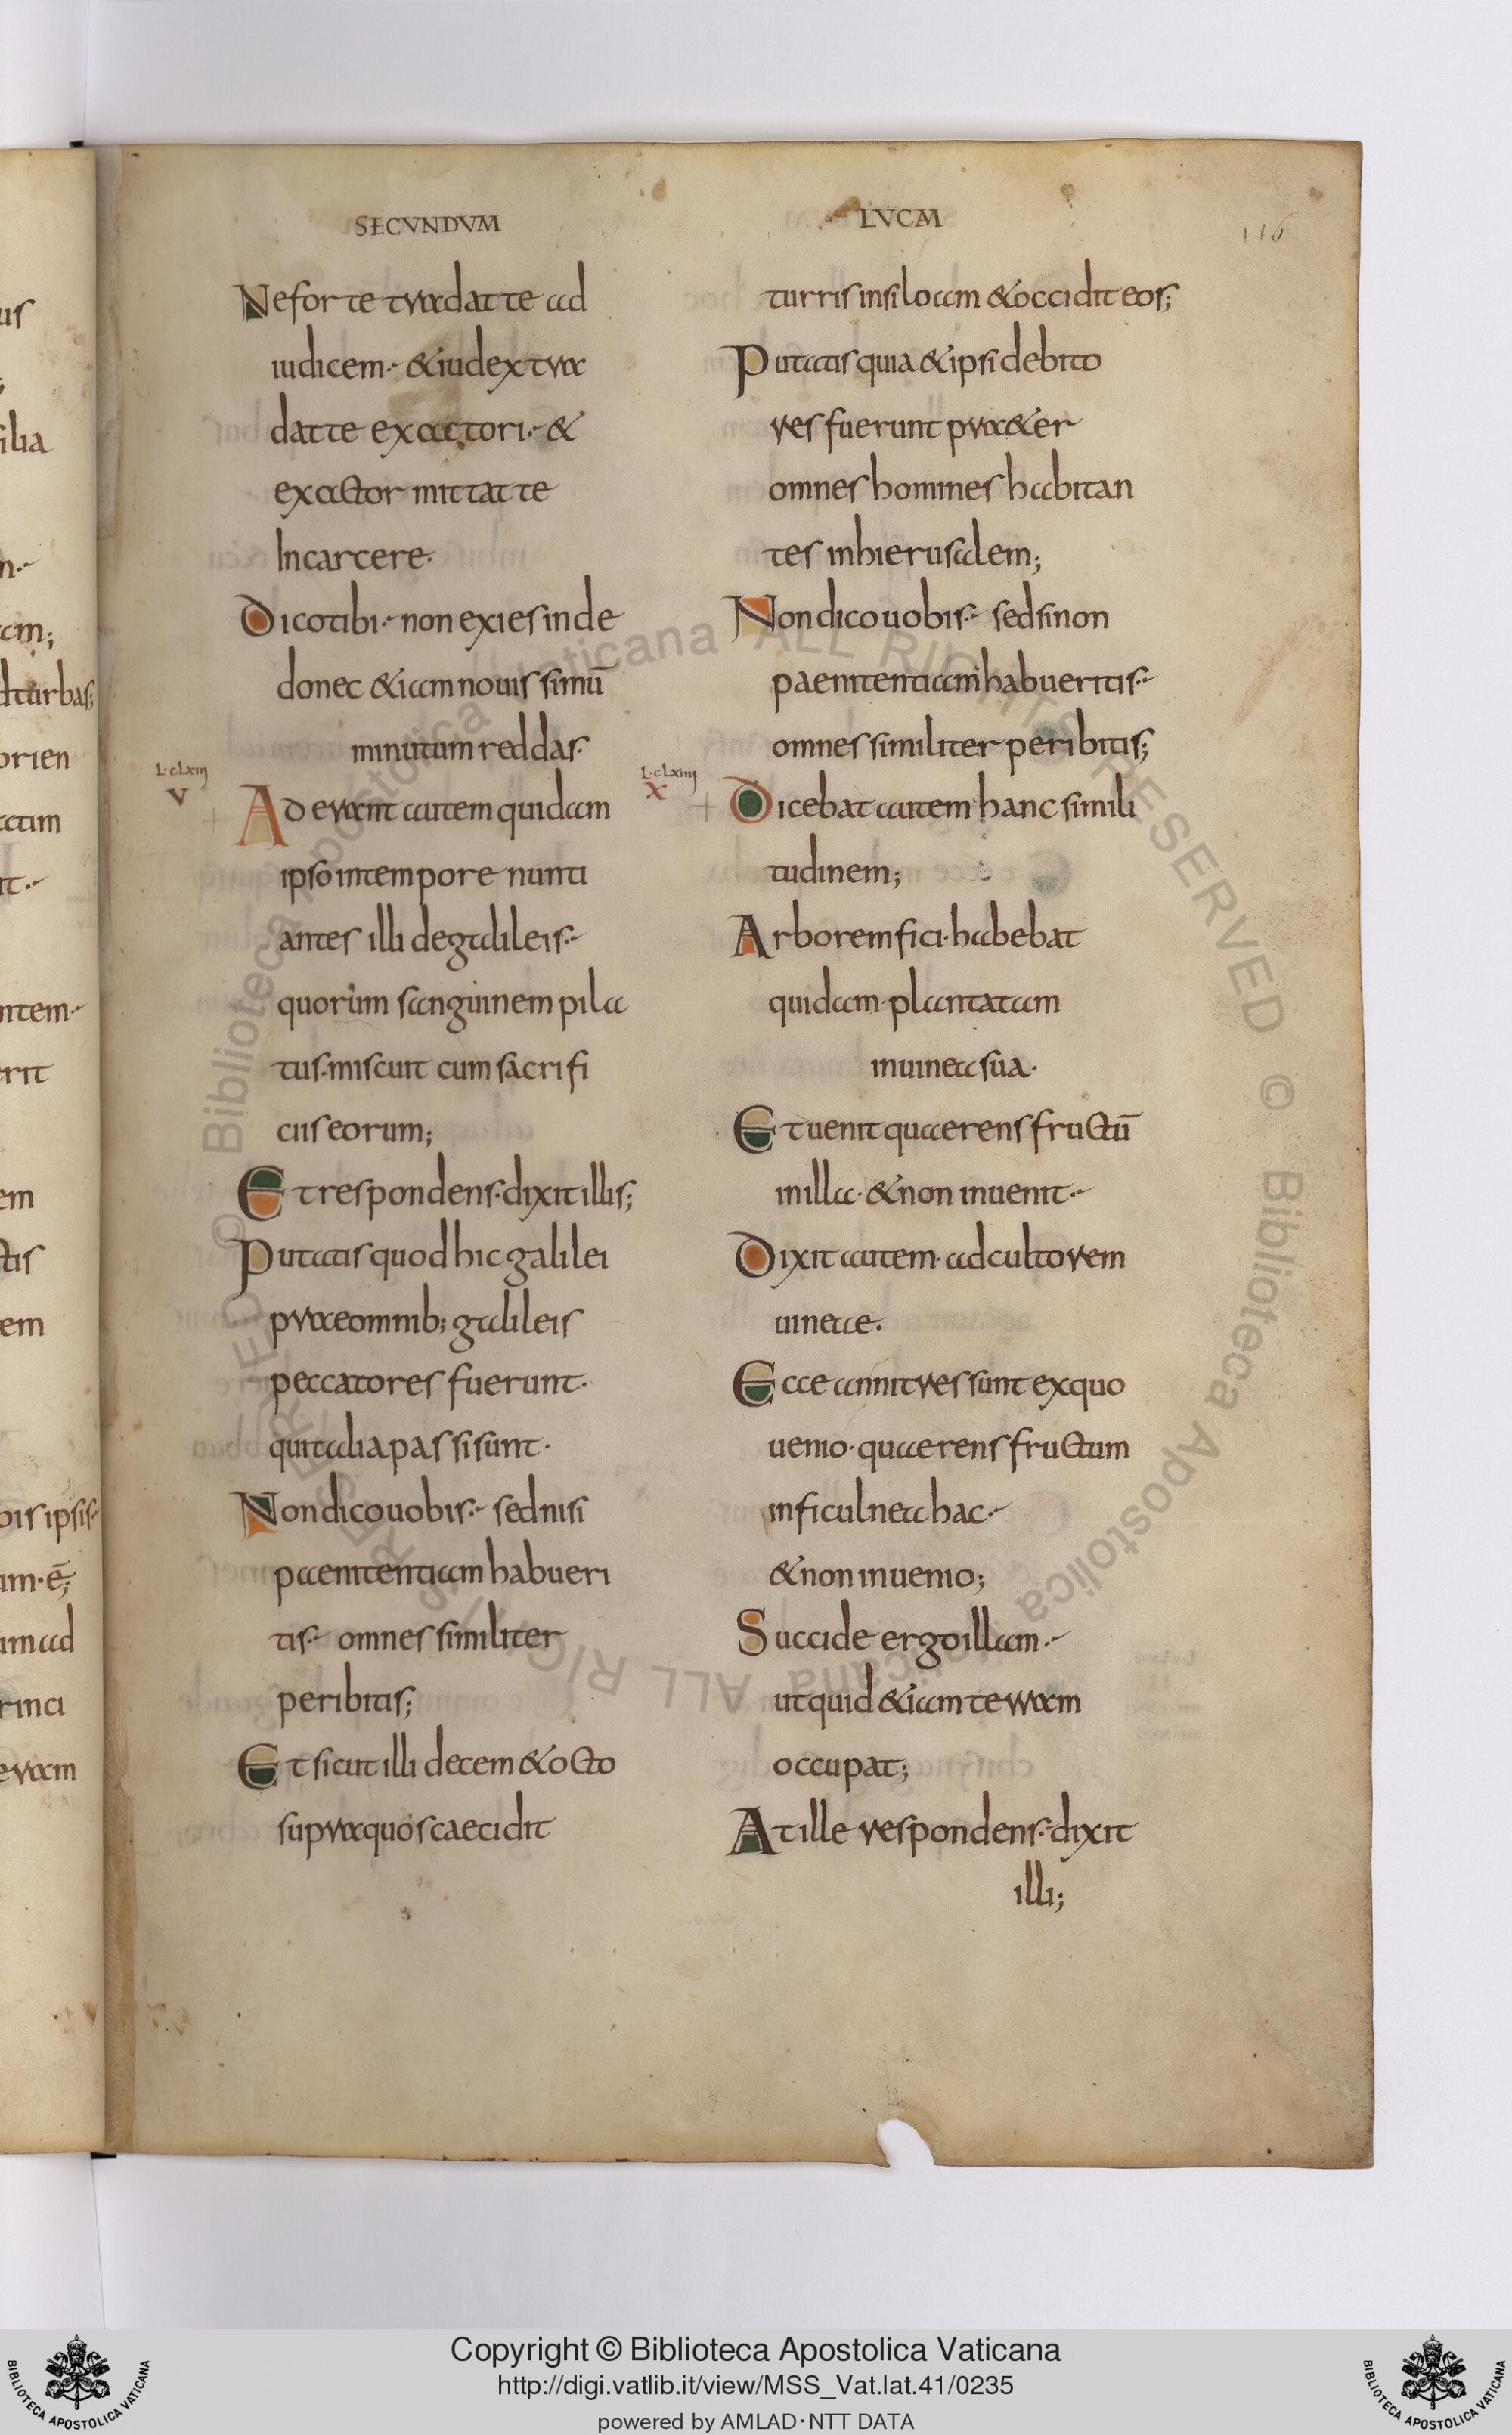 SECVNDVM
Ne forte tradat te ad
iudicem · & iudex tra
dat te exactori · &
exactor mittat te
In carcere ·
Dico tibi · non exies inde
donec &iam nouissimū
minutum reddas ·
L · cLxiij
V
Aderant autem quidam
ipso in tempore nunti
antes illi de galileis ·
quorum sanguinem pila
tus · miscuit cum sacrifi
ciis eorum;
Et respondens · dixit illis;
Putatis quod hic galilei
prae omnib; galileis
peccatores fuerunt ·
qui talia passi sunt ·
Non dico uobis · sed nisi
paenitentiam habueri
tis · omnes similiter
peribitis;
Et sicut illi decem & octo
supra quos caecidit
LVCAM
116
turris in siloam & occidit eos;
Putatis quia & ipsi debito
res fuerunt praeter
omnes homines habitan
tes in hierusalem;
Non dico uobis · sed si non
paenitentiam habueritis ·
omnes similiter peribitis;
L · cLxiiij
X
Dicebat autem hanc simili
tudinem;
Arborem fici · habebat
quidam · plantatam
in uinea sua ·
Et uenit quaerens fructū
in illa · & non inuenit ·
Dixit autem · ad cultorem
uineae ·
Ecce anni tres sunt ex quo
uenio · quaerens fructum
in ficulnea hac ·
& non inuenio;
Succide ergo illam ·
ut quid &iam terram
occupat;
At ille respondens · dixit
illi;
Copyright © Biblioteca Apostolica Vaticana
http://digi.vatlib.it/view/MSS_Vat.lat.41/0235
powered by AMLAD · NTT DATA